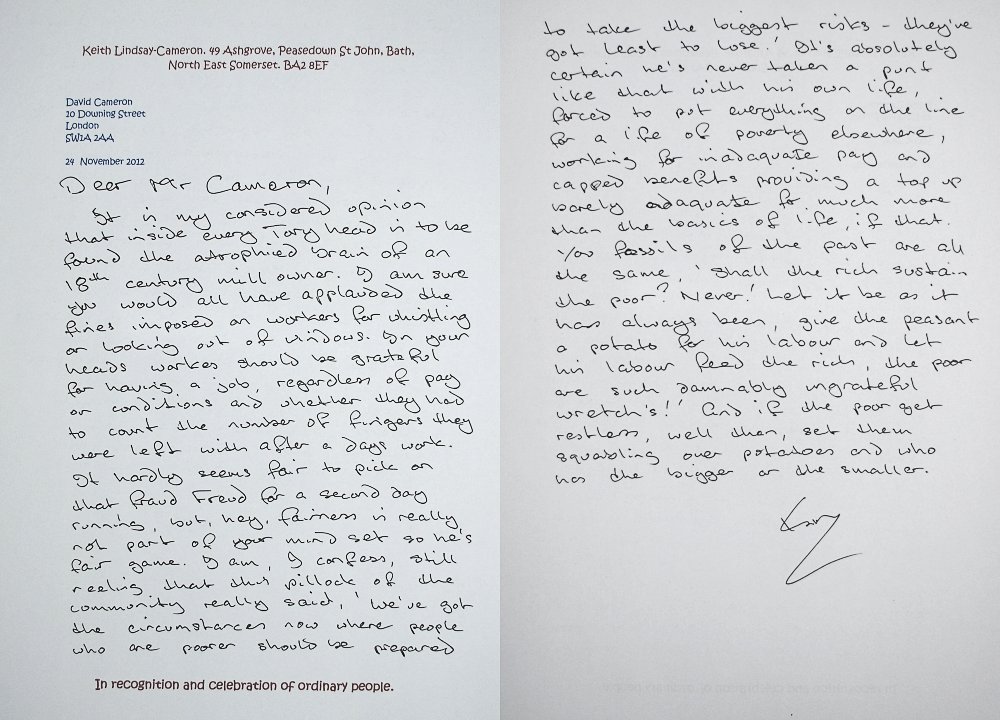 Keith Lindsay-Cameron. 49 Ashgrove, Peasedown St John, Bath,
North East Somerset. BA2 8EF
David Cameron
10 Downing Street
London
SW1A 2AA
24 November 2012
Dear Mr Cameron,
It is my considered opinion
that inside every Tory head is to be
found the atrophied brain of an
18th century mill owner. I am sure
you would all have applauded the
fines imposed on workers for whistling
or looking out of windows. In your
heads workes should be grateful
for having a job, regardless of pay
or conditions and whether they had
to count the number of fingers they
were left with after a days work.
It hardly seems fair to pick on
that fraud Freud for a second day
running, but, hey, fairness is really
not part of your mind set so he's
fair game. I am, I confess, still
reeling that this pillock of the
community really said, 'We've got
the circumstances now where people
who are poorer should be prepared
In recognition and celebration of ordinary people.
to take the biggest risks - they've
got least to lose.' It's absolutely
certain he's never taken a punt
like that with his own life,
forced to put everything on the line
for a life of poverty elsewhere,
working for inadaquate pay and
capped benefits providing a top up
barely adaquate for much more
than the basics of life, if that.
You fossils of the past are all
the same, 'Shall the rich sustain
the poor? Never! Let it be as it
has always been, give the peasant
a potato for his labour and let
his labour feed the rich, the poor
are such damnably ungrateful
wretch's!' And if the poor get
restless, well then, set them
squabling over potatoes and who
has the bigger or the smaller.